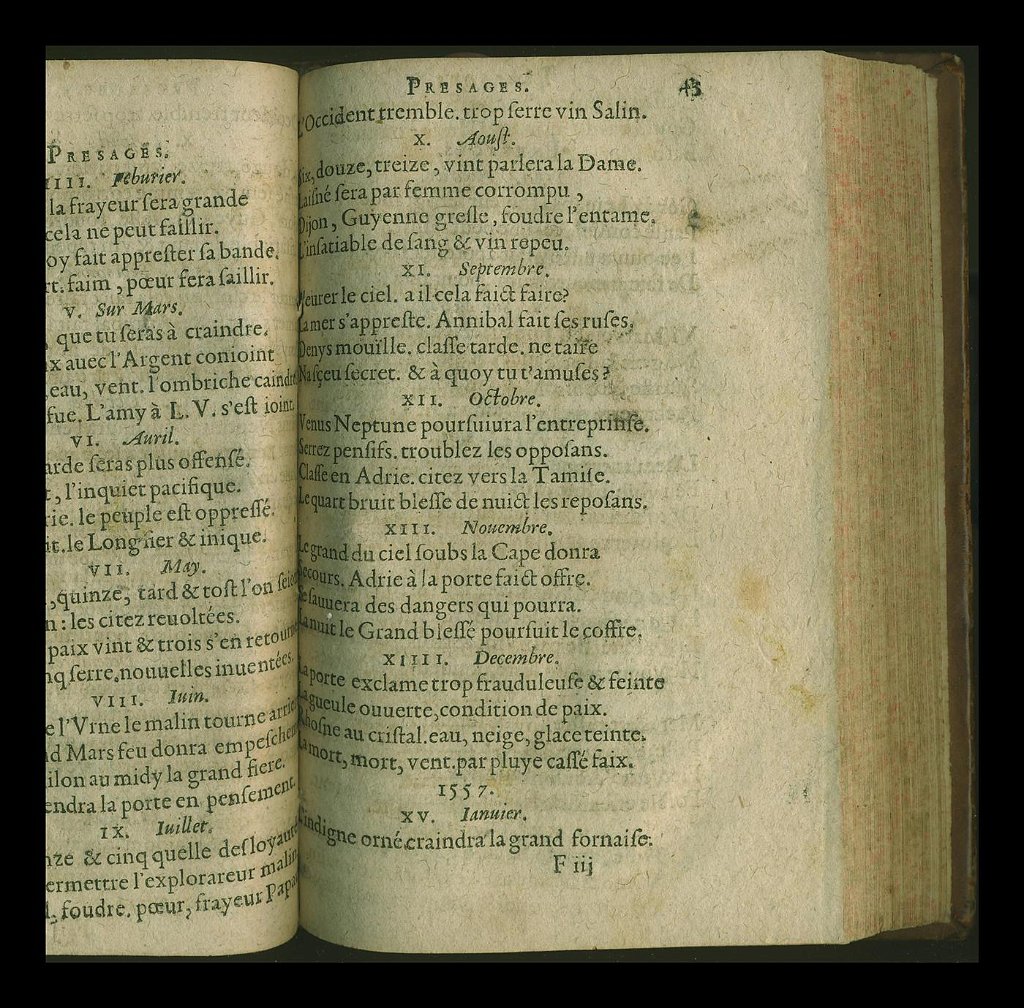 PRESAGES.
IIII. Feburier.
la frayeur sera grande
cela ne peut faillir.
oy fait apprester sa bande.
rt. faim, pœur fera saillir.
V. Sur Mars.
, que tu seras à craindre.
x auec l'Argent conioint
eau, vent. l'ombriche caindre
fue. L'amy à L. V. s'est ioint.
VI. Auril.
arde seras plus offensé.
t, l'inquiet pacifique.
rie. le peuple est oppressé.
it. le Longner & inique.
VII. May.
, quinze, tard & tost l'on
n : les citez reuoltées.
paix vint & trois s'en retourne
nq serre. nouuelles inuentées.
VIII. Iuin.
e l'Vrne le malin tourne
d Mars feu donra
ilon au midy la grand fiere.
endra la porte en pensement.
IX. Iuillet.
nze & cinq quelle desloyauté
ermettre l'explorareur malin
l, foudre. pœur, frayeur Papa
PRESAGES. 43
L'Occident tremble. trop serre vin Salin.
X. Aoust.
Six, douze, treize, vint parlera la Dame.
Laisné sera par femme corrompu,
Dijon, Guyenne gresle, foudre l'entame.
L'insatiable de sang & vin repeu.
XI. Septembre.
Pleurer le ciel. a il cela faict faire?
La mer s'appreste. Annibal fait ses ruses.
Denys mouille. classe tarde. ne taire
Na sçeu secret. & à quoy tu t'amuses?
XII. Octobre.
Venus Neptune poursuiura l'entreprinse.
Serrez pensifs. troublez les opposans.
Classe en Adrie. citez vers la Tamise.
Le quart bruit blesse de nuict les reposans.
XIII. Nouembre.
Le grand du ciel soubs la Cape donra
Secours. Adrie à la porte faict offre.
Se sauuera des dangers qui pourra.
La nuit le Grand blessé poursuit le coffre.
XIIII. Decembre.
La porte exclame trop frauduleuse & feinte
La gueule ouuerte, condition de paix.
Rhosne au cristal. eau, neige, glace teinte.
La mort, mort, vent. par pluye cassé faix.
1557.
XV. Ianuier.
L'indigne orné craindra la grand fornaise.
F iij